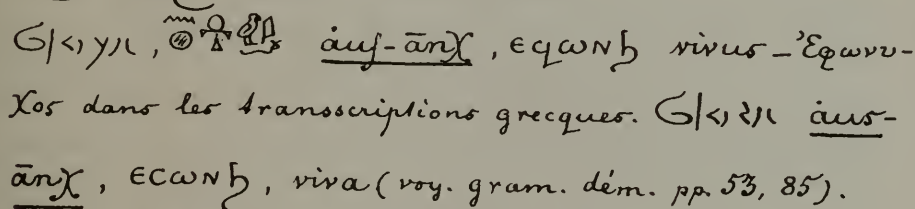 àuf-ānχ, ⲉϥⲱⲛϧ vivus – Ἐφωνυ-
χos dans les transscriptions grecques. àus-
ānχ, ⲉⲥⲱⲛϧ, viva (voy. gram. dém. pp. 53, 85).